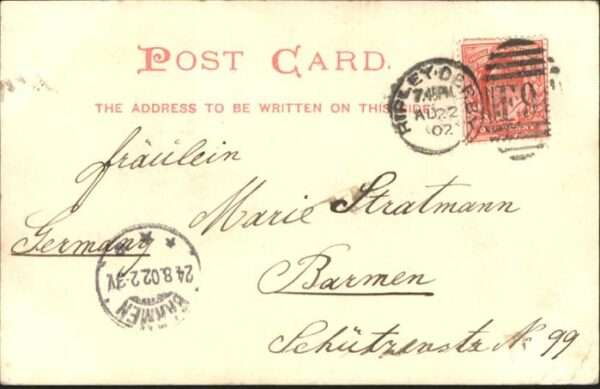 POST CARD.
THE ADDRESS TO BE WRITTEN ON THIS SIDE.
RIPLEY·DERBY
7.45PM
AU22
02
Fräulein
Marie Stratmann
Germany
Barmen
Schützenstr No 99
BARMEN
24.8.02.2-3V